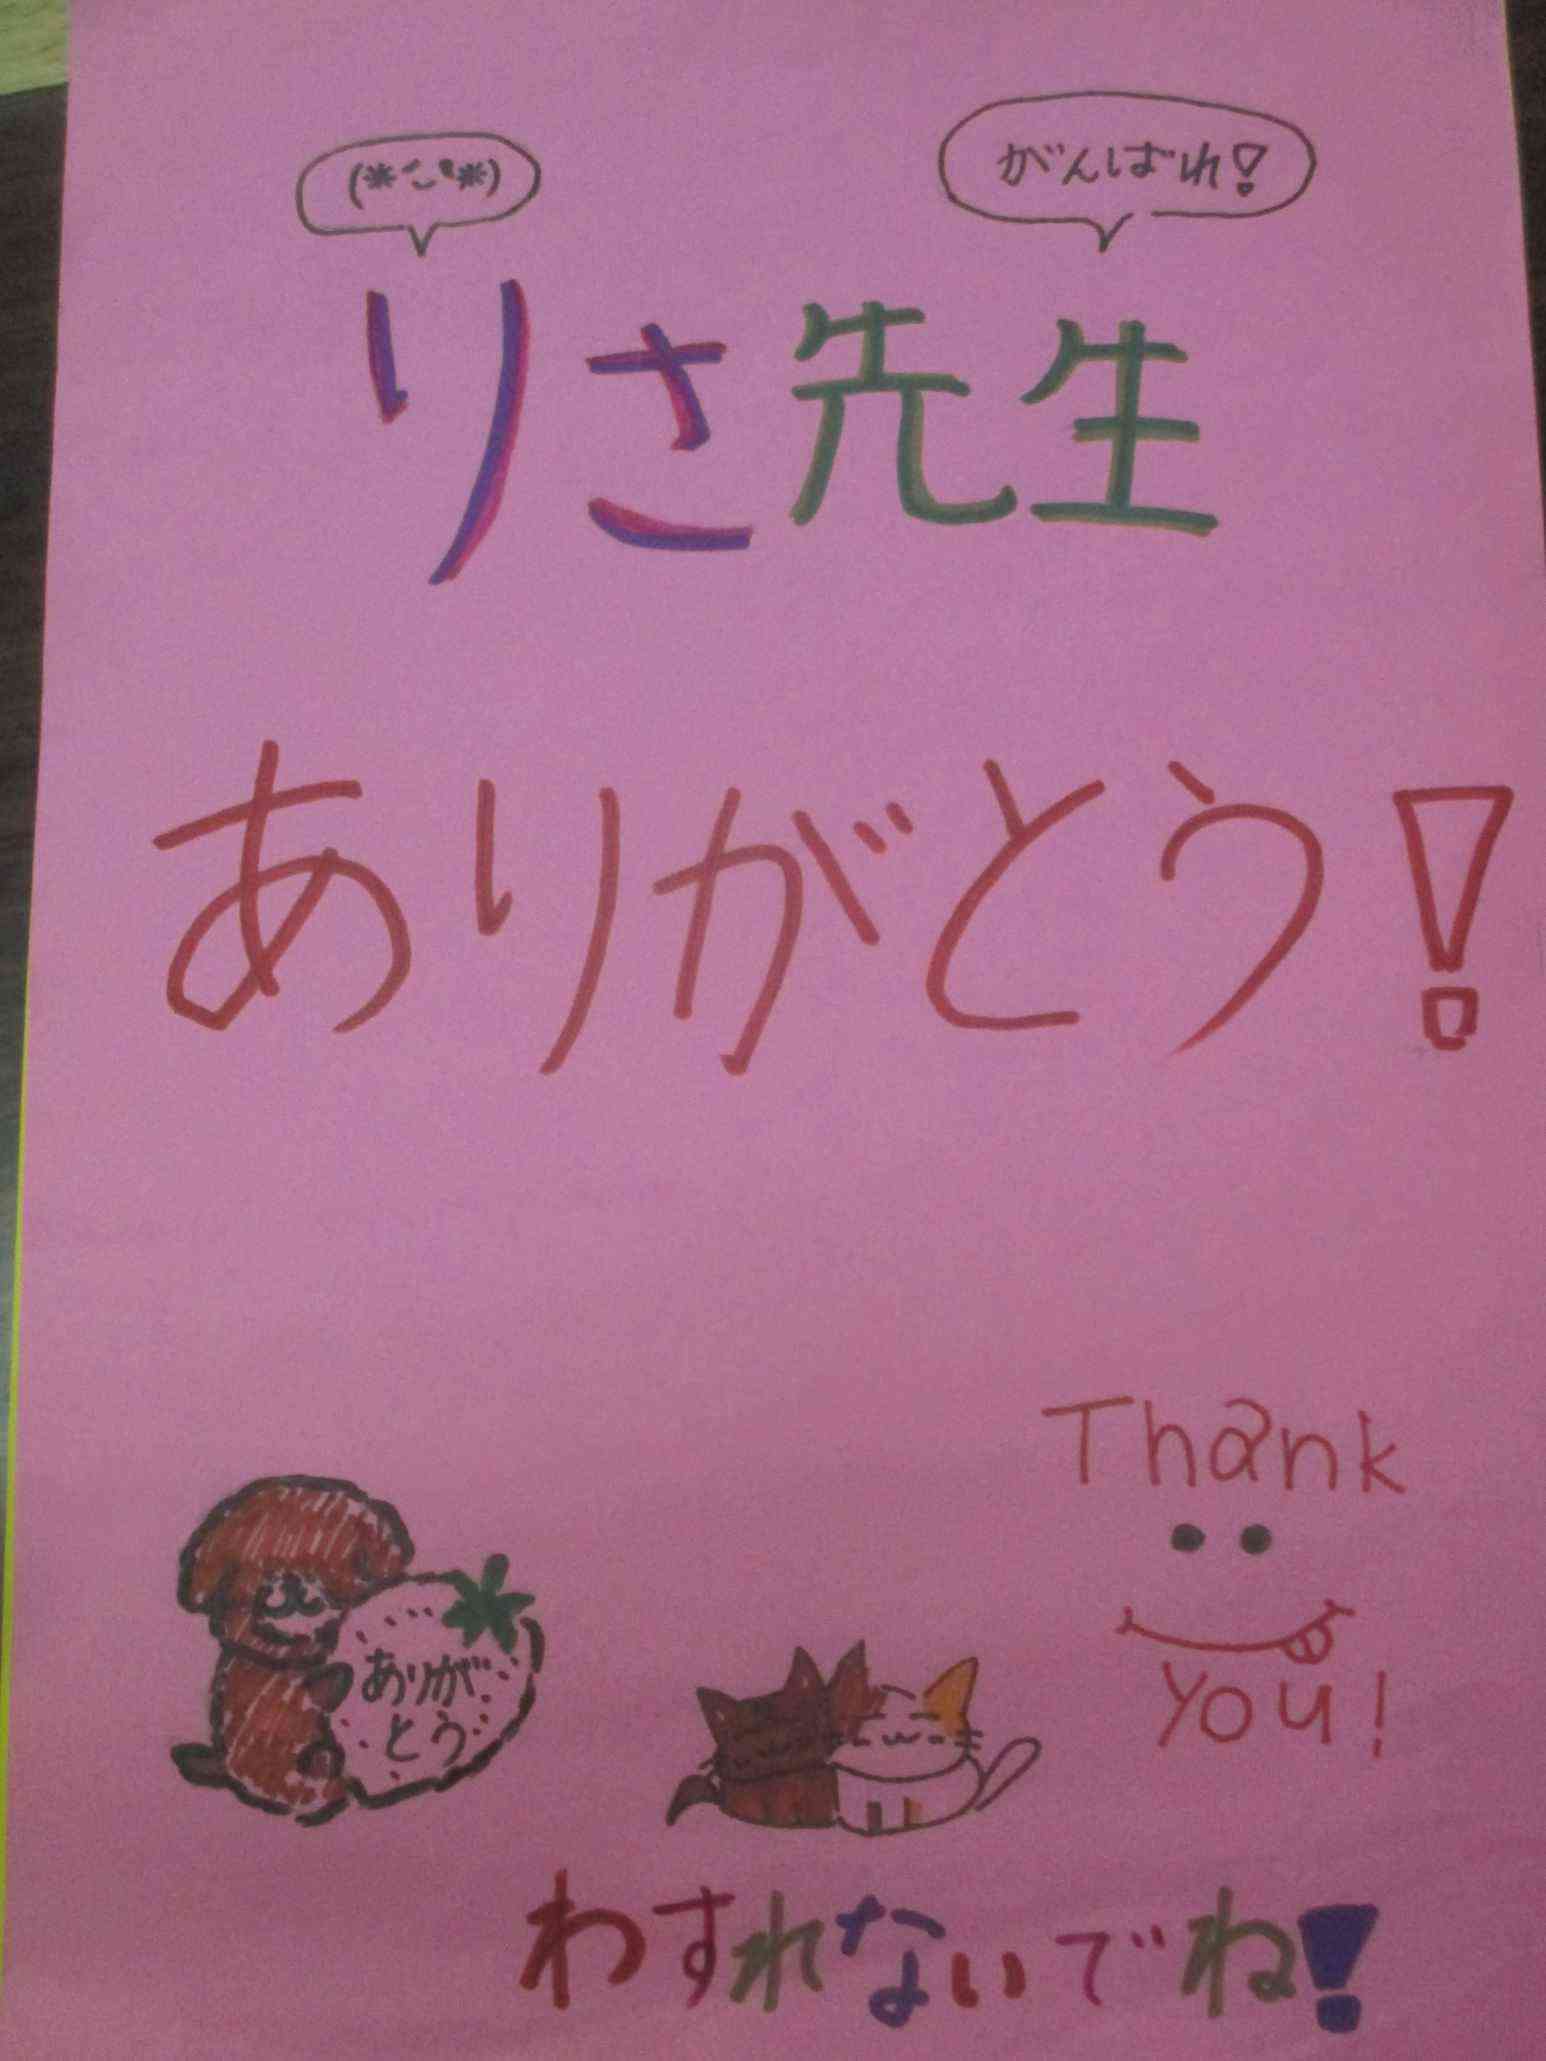 (*´ｰ`*)
がんばれ！
りさ先生
ありがとう！
Thank
you!
ありが
とう
わすれないでね！